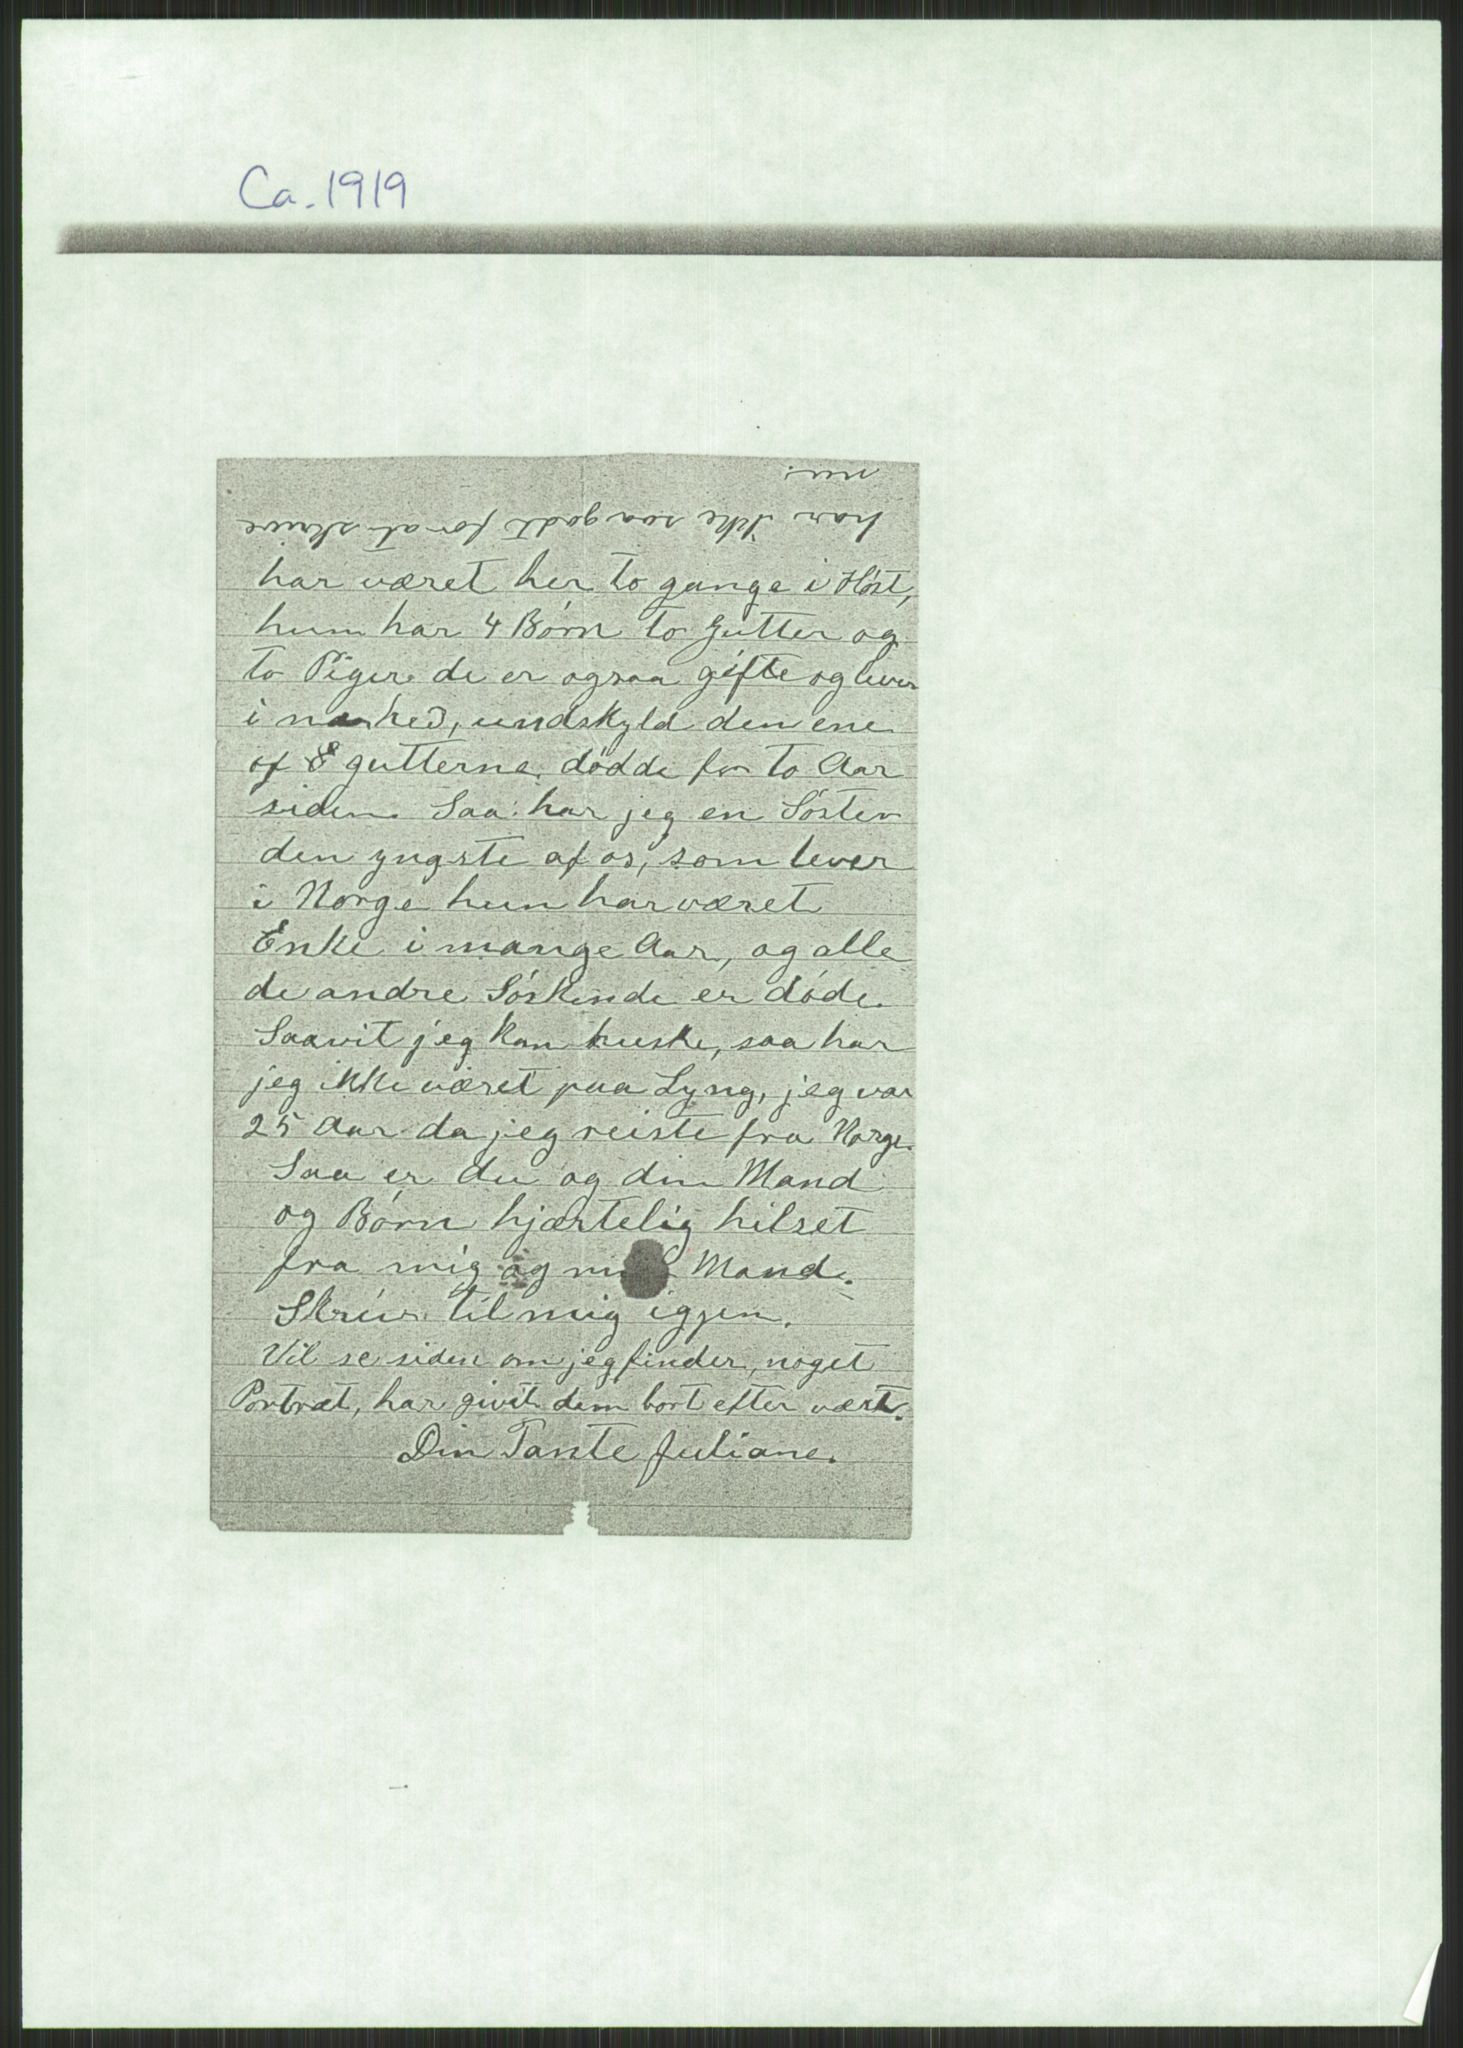 Ca. 1919
har ikke saa godt for at skrive
nu.
har været her to gange i Høst,
hun har 4 Børn to Gutter og
to Piger de er ogsaa gifte og lever
i nærhed, undskyld den ene
af gutterne dødde for to Aar
siden. Saa har jeg en Søster
den yngste af os, som lever
i Norge hun har været
Enke i mange Aar, og alle
de andre Søskende er døde.
Saavit jeg kan huske, saa har
jeg ikke været paa Lyng, jeg var
25 Aar da jeg reiste fra Norge.
Saa er du og din Mand
og Børn hjærtelig hilset
fra mig og min Mand.
Skriv til mig igjen.
Vil se siden om jeg finder noget
Portræt, har givit dem bort efter vært.
Din Tante Juliane.